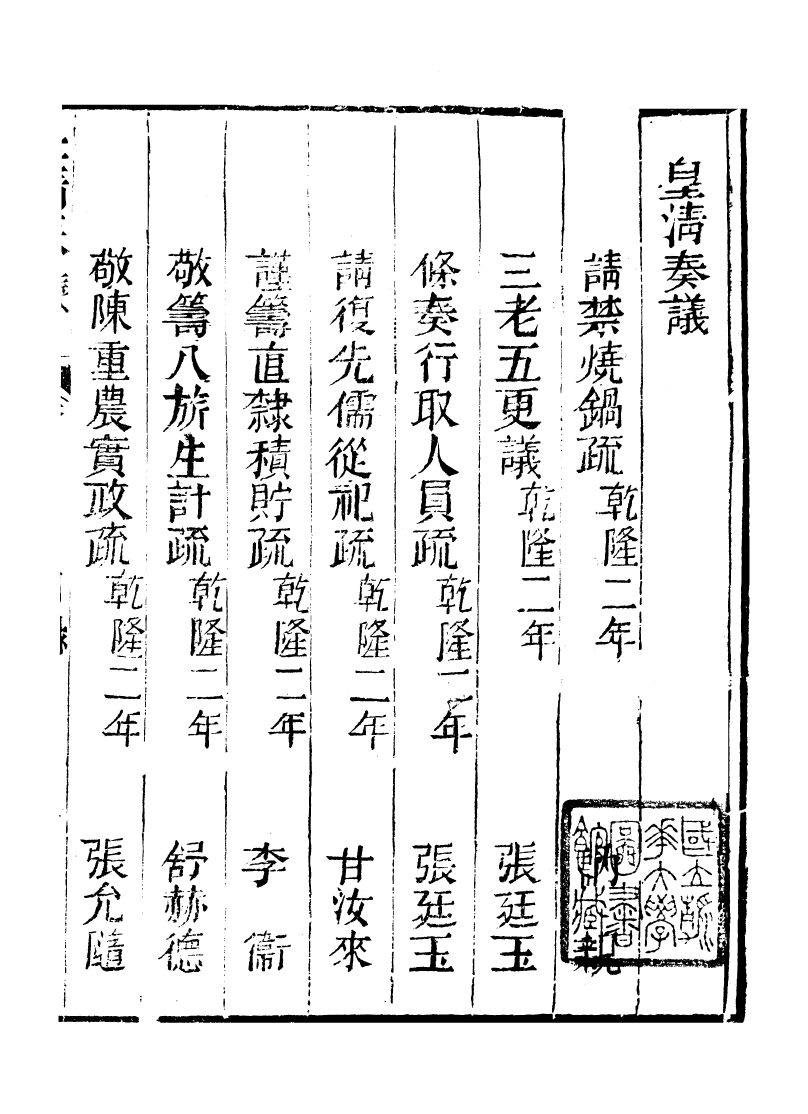 皇清奏議
請禁燒鍋疏乾隆二年
三老五更議乾隆二年 張廷玉
條奏行取人員疏乾隆二年 張廷玉
請復先儒從祀疏乾隆二年 甘汝來
謹籌直隸積貯疏乾隆二年 李衞
敬籌八旂生計疏乾隆二年 舒赫德
敬陳重農實政疏乾隆二年 張允隨
國立清
華大學
圖書
館藏